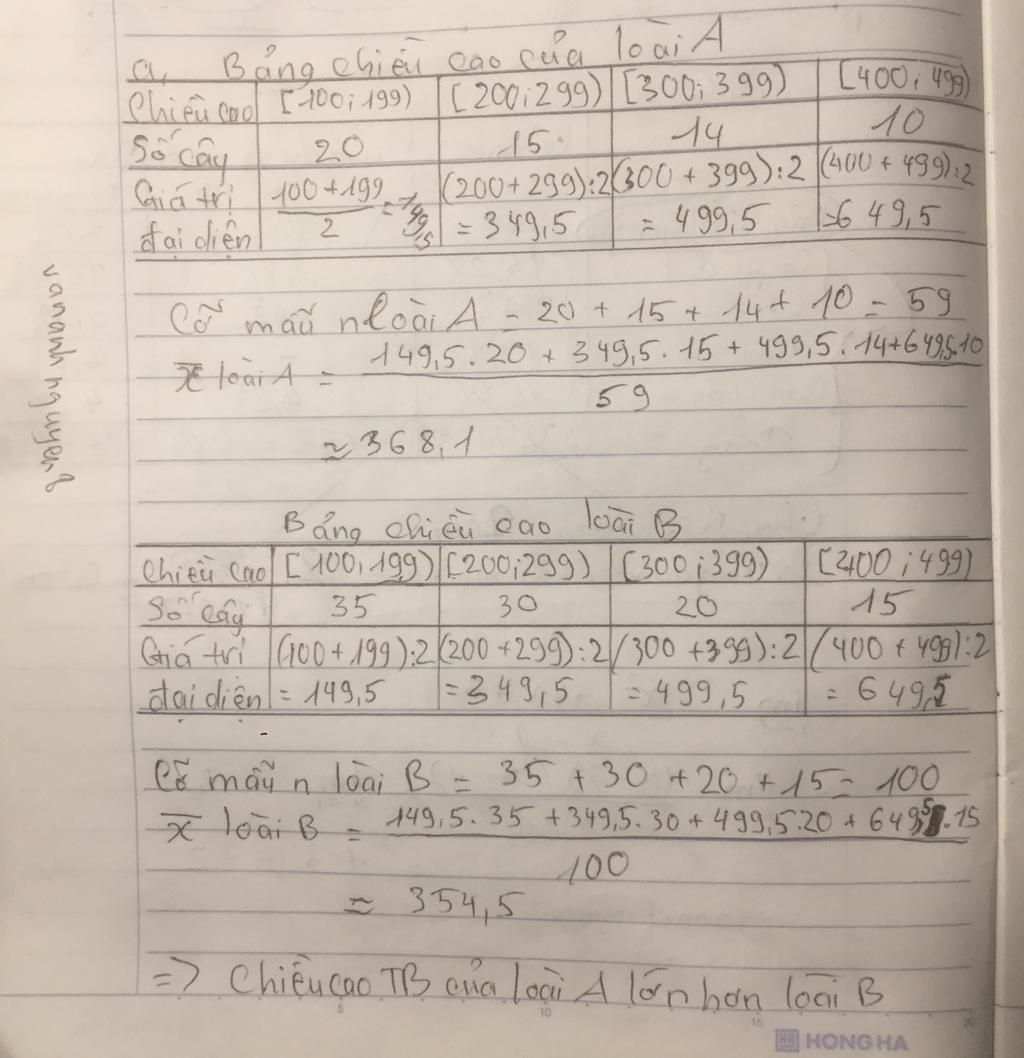 a, Bảng chiều cao của loài A
Chiều cao [100; 199) [200; 299) [300; 399) [400; 499)
Số cây 20 15 14 10
Giá trị đại diện (100 + 199)/2 = 149,5 (200 + 299):2 = 349,5 (300 + 399):2 = 499,5 (400 + 499):2 = 649,5
Cỡ mẫu n loài A = 20 + 15 + 14 + 10 = 59
x̄ loài A = (149,5 . 20 + 349,5 . 15 + 499,5 . 14 + 649,5 . 10)/59
≈ 368,1
Bảng chiều cao loài B
Chiều cao [100; 199) [200; 299) [300; 399) [400; 499)
Số cây 35 30 20 15
Giá trị (100 + 199):2 (200 + 299):2 (300 + 399):2 (400 + 499):2
đại diện = 149,5 = 349,5 = 499,5 = 649,5
Cỡ mẫu n loài B = 35 + 30 + 20 + 15 = 100
x̄ loài B = (149,5 . 35 + 349,5 . 30 + 499,5 . 20 + 649,5 . 15)/100
≈ 354,5
=> Chiều cao TB của loài A lớn hơn loài B
vananh nguyen 8
5 10 15 20
HONG HA